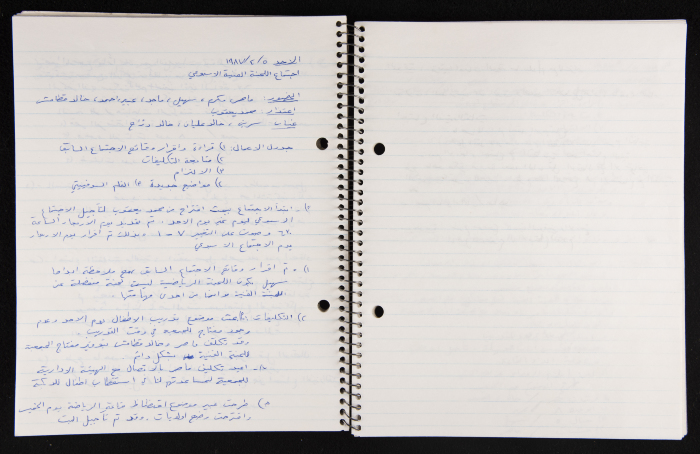 الاحد ٥/٢/١٩٨٧
اجتماع اللجنة الفنية الاسبوعي
الحضور: ماهر، سهيل، ماجد، عبد احمد، خالد قطامش
اعتذار محمد يعقوب
غياب خالد عليان، خالد
جدول الاعمال: ١) قراءة واقرار وقائع الاجتماع السابق
٢) متابعة التكليفات
٣) الالتزام
٤) مواضيع جديدة الفلم السوفييتي
ابتدأ الاجتماع ببحث اقتراح من محمد يعقوب لتأجيل الاجتماع
الاسبوعي ليوم غير يوم الاحد. تم يوم الاربعاء الساعة
وبذلك تم اقرار يوم الاربعاء
يوم الاجتماع الاسبوعي
١) تم اقرار وقائع الاجتماع السابق مع ملاحظة ابداها
سهيل بكون اللجنة الرياضية ليست لجنة منفصلة عن
اللجنة الفنية وانما من احدى مهامها.
٢) التكليفات: موضوع تدريب الاطفال يوم الاحد وعدم
وجود مفتاح للجمعية في وقت التدريب.
وقد تكلف ماهر وخالد قطامش بتوفير مفتاح الجمعية
للجنة الفنية بشكل دائم.
اعيد تكليف ماهر بالاتصال مع الهيئة الادارية
للجمعية لمساعدتهم لنا في استقطاب اطفال للدبكة
٣) موضوع الرياضة يوم الخميس
واقترحت وضع اولويات. وقد تم تأجيل البت